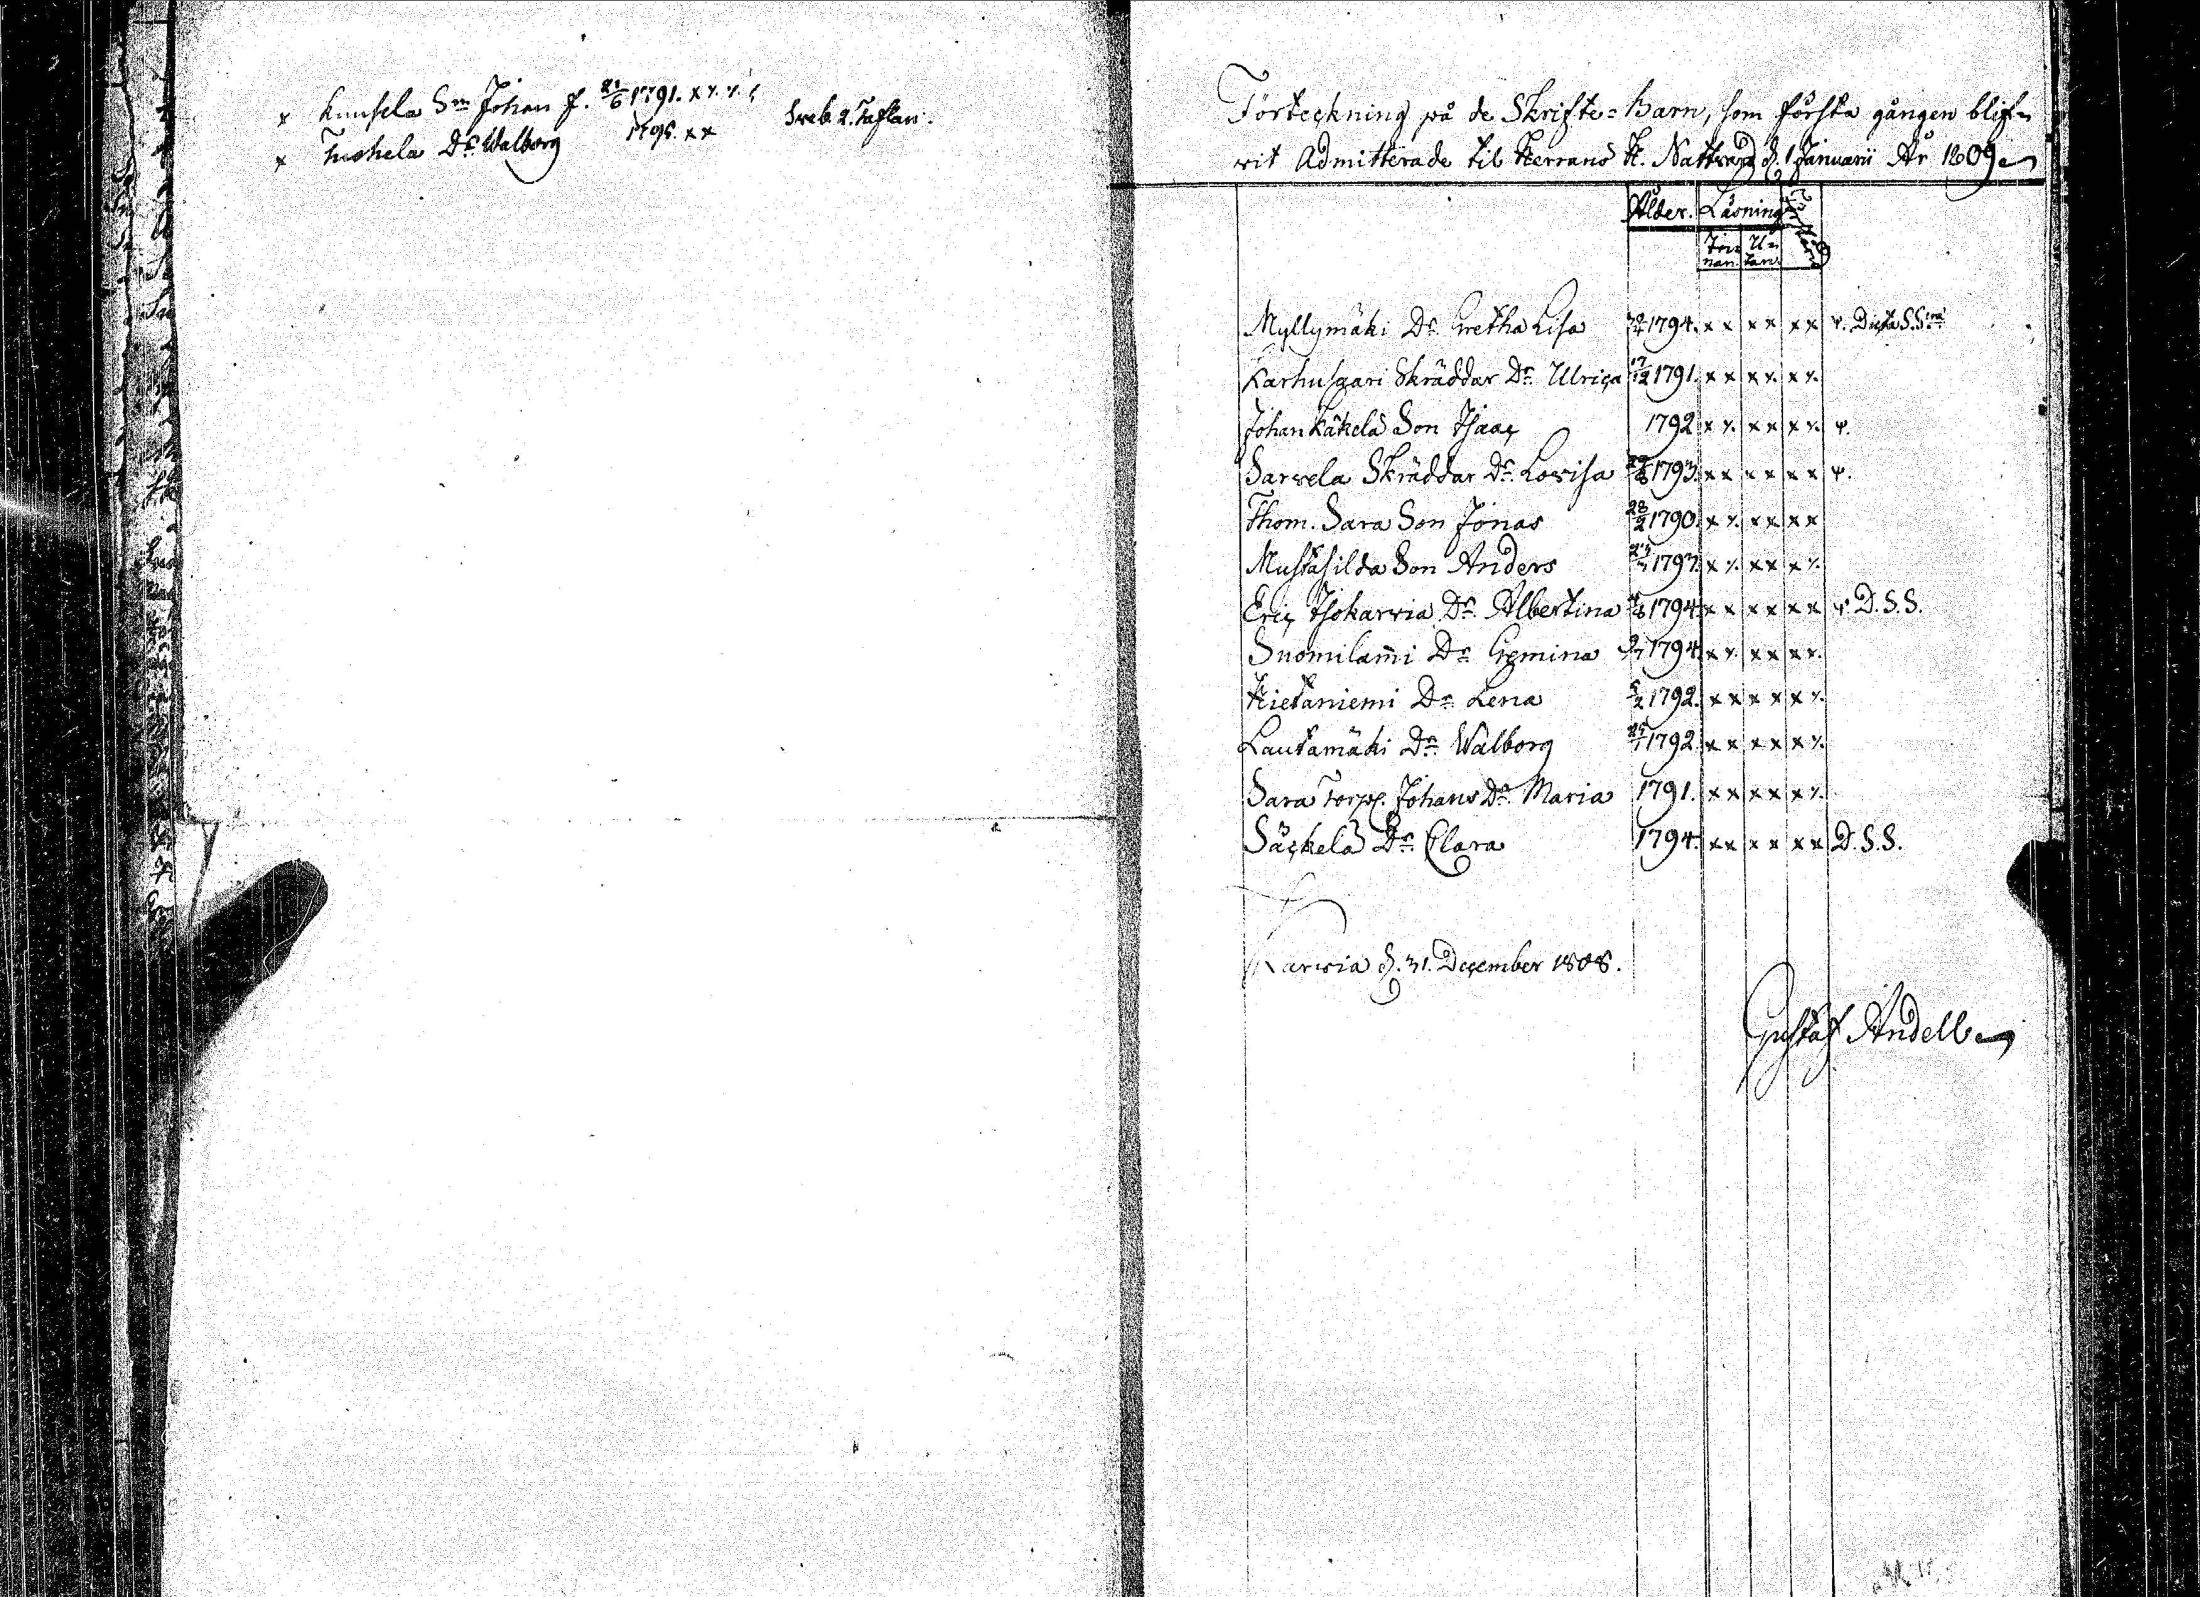 x Knusela Sn Johan f. 21/6 1791. x x. x.
x Tuohela Dr. Walborg 1795. x x
Förteckning på de Skrifte=Barn, som första gången blif=
wit Admitterade til Herrans H. Nattvard d. 1 Januarii År 1809
Ålder. Läsning
In=nan. U=tan.
Myllymäki Dr. Gretha Lisa 1794. x x x x x x
Karhusaari Skräddar Dr. Ulrica 17/12 1791. x x x x. x x.
Johan Käkelä Son Isaac 1792 x x. x x x x.
Sarvela Skräddar Dr. Lovisa 1793. x x x x x x
Thom. Sara Son Jonas 28/2 1790. x x. x x x x
Mustasilda Son Anders 1793. x x. x x x x.
Eric Isokarvia Dr. Albertina 1794. x x x x x x D.S.S.
Suomilam̄i Dr. 1794. x x. x x x x.
Hietaniemi Dr. Lena 5/2 1792. x x x x x x.
Lautamäki Dr. Walborg 25/1 1792. x x x x x x.
Sara Torp. Johans Dr. Maria 1791. x x x x x x.
Säckelä Dr. Clara 1794. x x x x x x D.S.S.
Karvia d. 31. December 1808.
Gustaf Andell